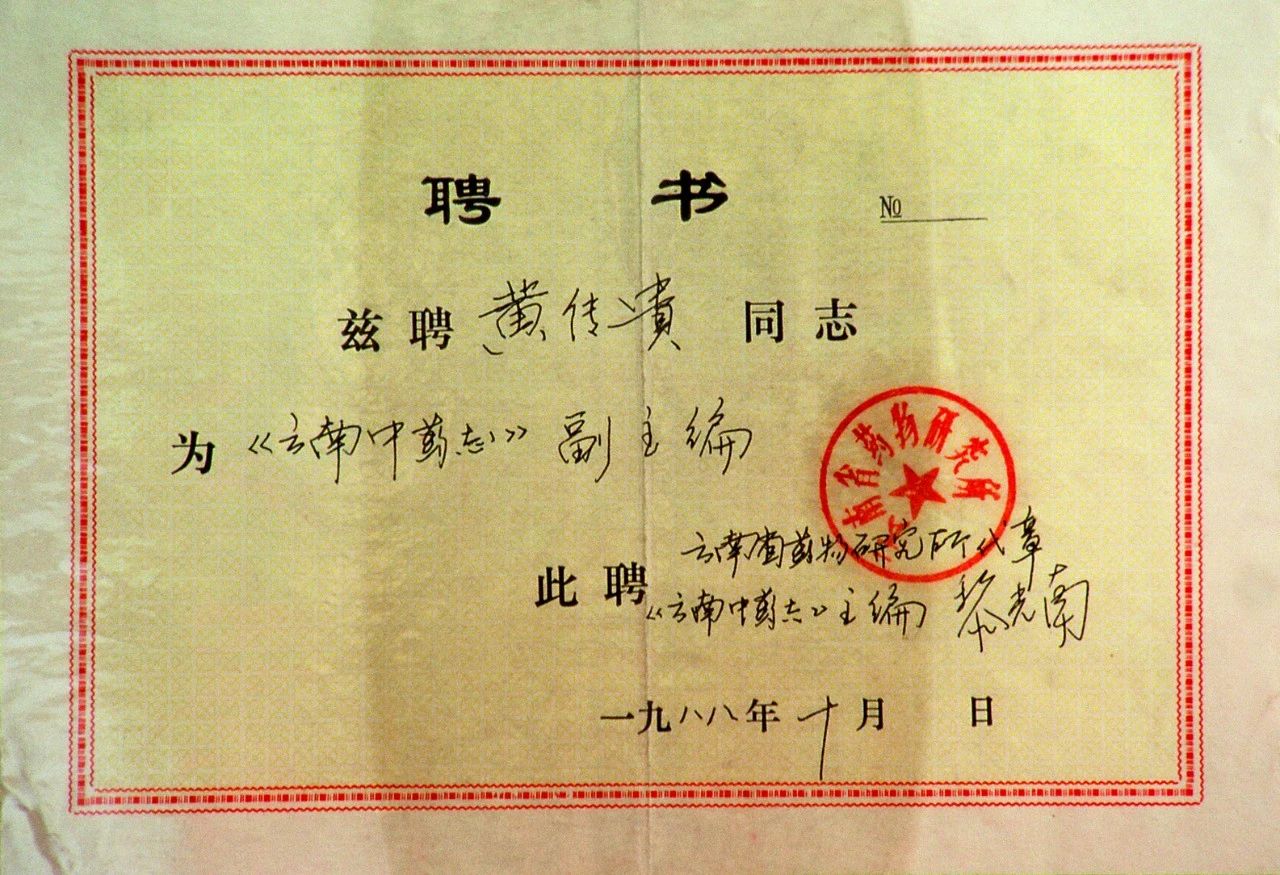 聘书 №
兹聘黄传贵同志
为《云南中药志》副主编
云南省药物研究所
云南省药物研究所代章
此聘
《云南中药志》主编 黎光南
一九八八年十月 日